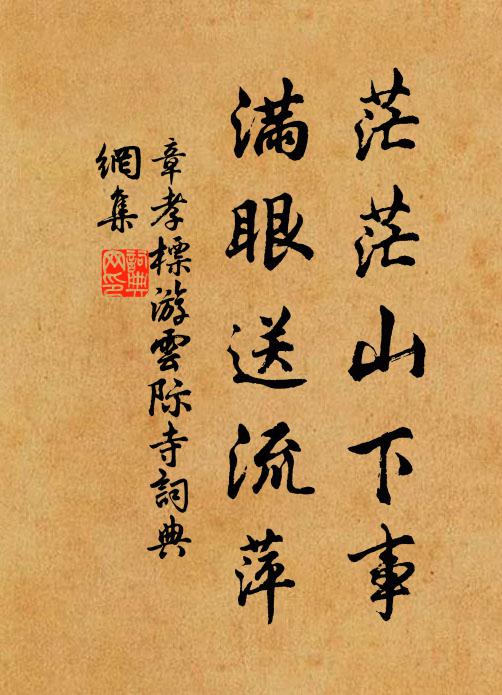 茫茫山下事
滿眼送流萍
章孝標游雲际寺詞典
網集
詞典
网印